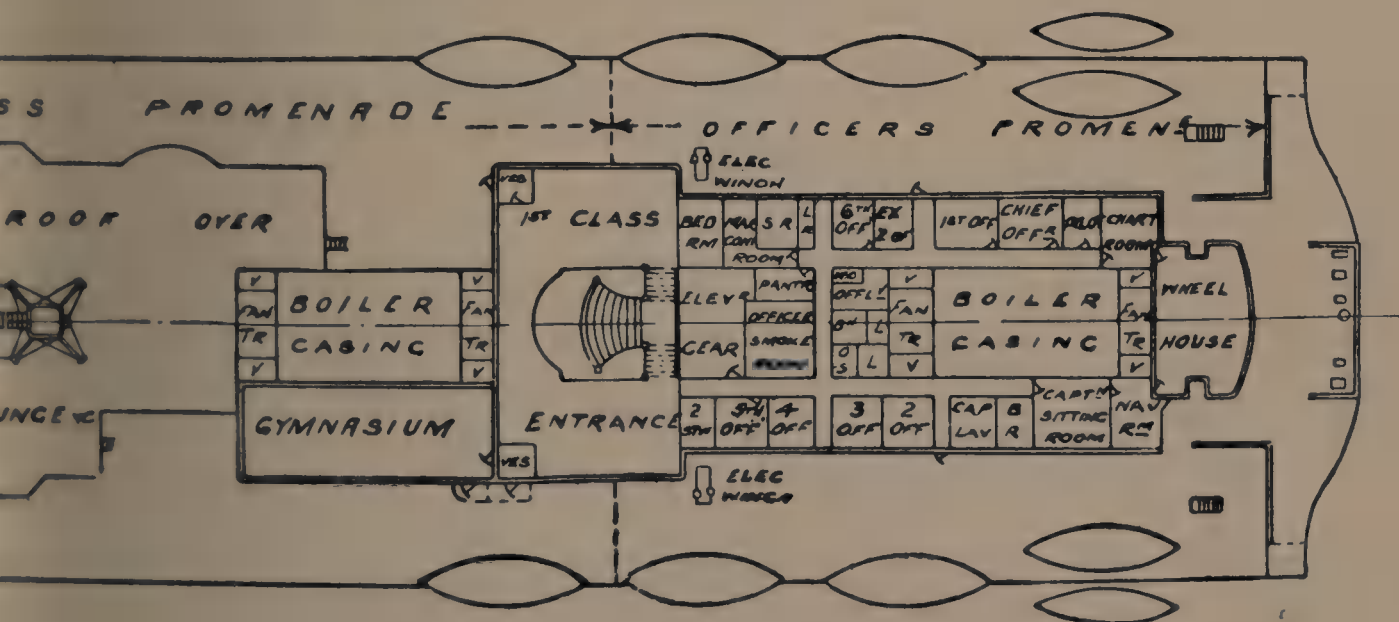 SS PROMENADE
OFFICERS PROMENE
ELEC
WINCH
ROOF OVER
VES
1ST CLASS
BED
RM
MAR
CONI
ROOM
S R
L
R
6TH
OFF
EX
2 OF
1ST OFF
CHIEF
OFFR
CHART
ROOM
V
FAN
TR
V
BOILER
CASING
V
FAN
TR
V
ELEVR
GEAR
PANTRY
OFFICER
SMOKE
OFF LV
L
O
S
L
V
FAN
TR
V
BOILER
CASING
V
FAN
TR
V
WHEEL
HOUSE
UNGE &C
GYMNASIUM
ENTRANCE
VES
2
5TH
OFF
4
OFF
3
OFF
2
OFF
CAP
LAV
B
R
CAPTN
SITTING
ROOM
NAV
RM
ELEC
WINCH